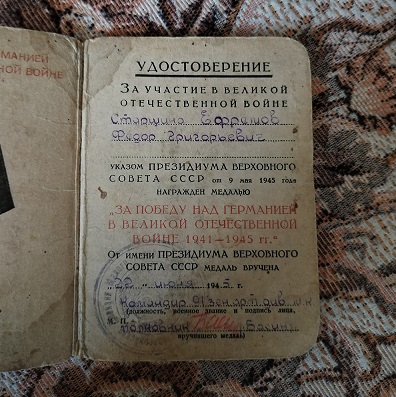 ГЕРМАНИЕЙ
НОЙ ВОЙНЕ
УДОСТОВЕРЕНИЕ
ЗА УЧАСТИЕ В ВЕЛИКОЙ
ОТЕЧЕСТВЕННОЙ ВОЙНЕ
Старшина Ефримов
Федор Григорьевич
УКАЗОМ ПРЕЗИДИУМА ВЕРХОВНОГО
СОВЕТА СССР от 9 мая 1945 года
НАГРАЖДЕН МЕДАЛЬЮ
„ЗА ПОБЕДУ НАД ГЕРМАНИЕЙ
В ВЕЛИКОЙ ОТЕЧЕСТВЕННОЙ
ВОЙНЕ 1941—1945 гг."
От ИМЕНИ ПРЕЗИДИУМА ВЕРХОВНОГО
СОВЕТА СССР МЕДАЛЬ ВРУЧЕНА
июня 1945 г.
Командир
(должность, военное звание и подпись лица,
М. П.
полковник
вручившего медаль)